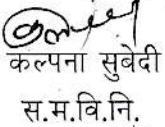 कल्पना सुवेदी
स.म.वि.नि.